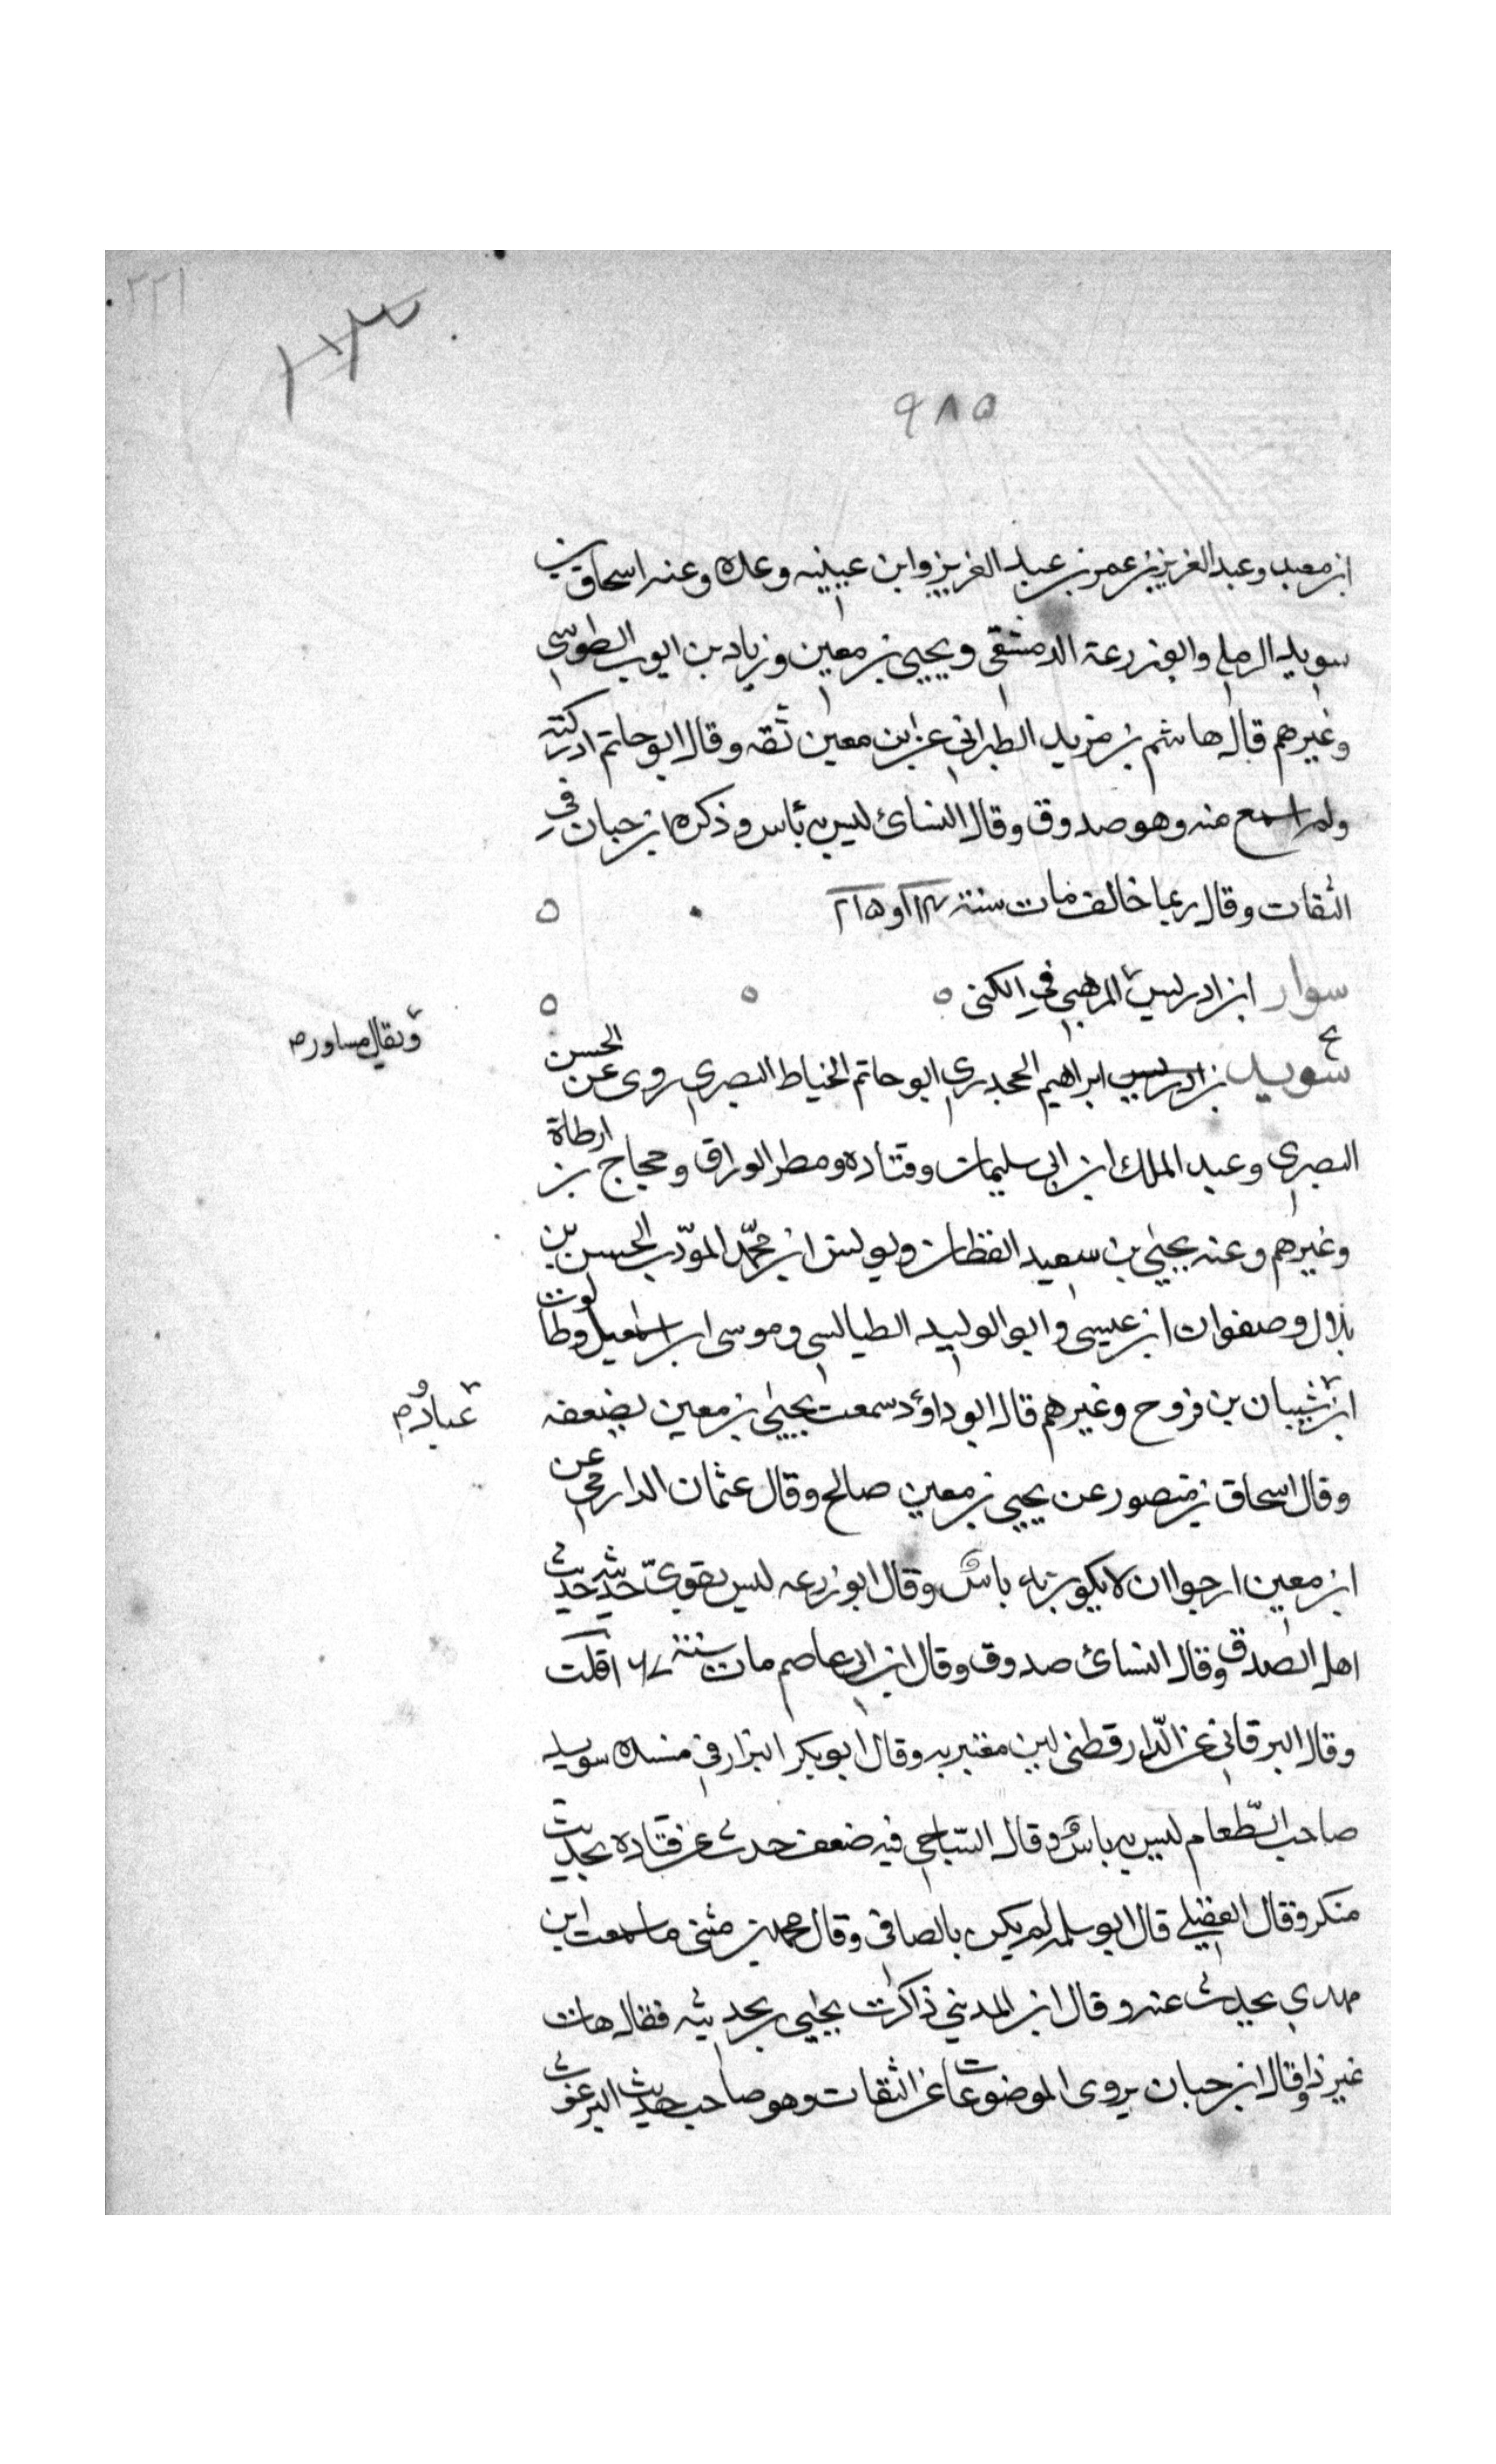 ٢٢١
٩٨٥
ابن معبد وعبد العزيز بن عمر بن عبد العزيز وابن عيينه وعده وعنه اسحاق بن
سويد الرملي وابو زرعة الدمشقي ويحيى بن معين وزياد بن ايوب الطوسي
وغيرهم قال هاشم بن مزيد الطبراني عن ابن معين ثقه وقال ابو حاتم ادركته
ولم اسمع منه وهو صدوق وقال النسائ ليس به بأس وذكره ابن حبان في
الثقات وقال ربما خالف مات سنة او ٢١٥
سوار ابن ادريس المرهبي في الكنى
ويقال مساور م
سويد بن ابراهيم الجحدري ابو حاتم الخياط البصري روى عن الحسن
البصري وعبد الملك ابن ابي سليمان وقتاده ومطر الوراق وحجاج بن ارطاة
وغيرهم وعنه يحيى بن سعيد القطان ويونس ابن محمد المودب الحسن بن
بلال وصفوان ابن عيسى وابو الوليد الطيالسي وموسى ابن اسمعيل وطالوت
ابن شيبان بن فروح وغيرهم قال ابو داؤد سمعت يحيى بن معين يضعفه
عباد و م
وقال اسحاق بن منصور عن يحيى بن معين صالح وقال عثمان الدارمي عن
ابن معين ارجوا ان لا يكون به باس وقال ابو زرعه ليس بقوي حديثه حديث
اهل الصدق وقال النسائ صدوق وقال ابن ابي عاصم مات سنة قلت
وقال البرقاني عن الدارقطني لين معتبر به وقال ابو بكر البزار في مسنده سويد
صاحب الطعام ليس به باس وقال الساجي فيه ضعف حدث عن قتاده بحديث
منكر وقال العقيلي قال ابو سلمه لم يكن بالصافي وقال محمد بن مثنى ما سمعت ابن
مهدي يحدث عنه وقال ابن المديني ذاكرت يحيى بحديثه فقال هات
غير ذا وقال ابن حبان يروى الموضوعات عن الثقات وهو صاحب حديث البرغوث